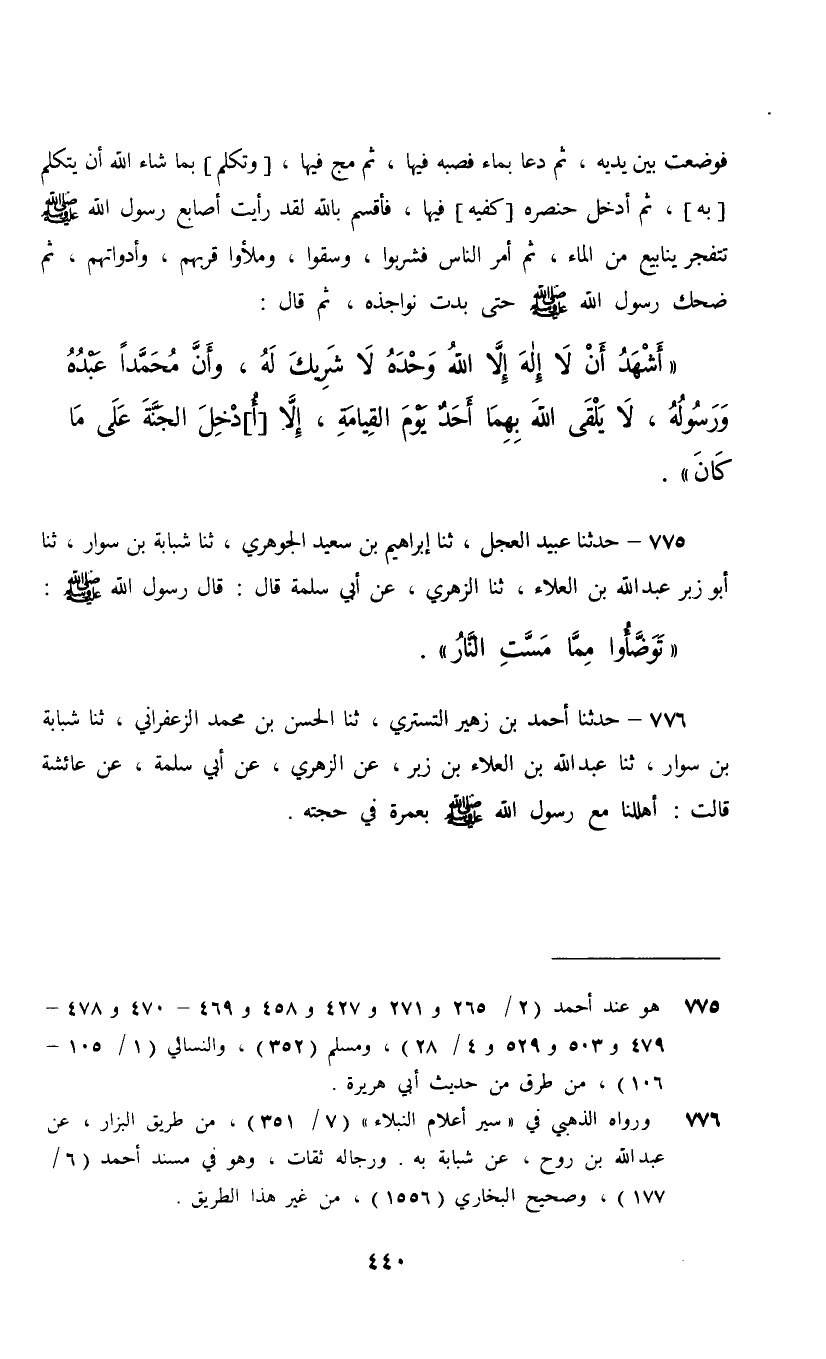 فوضعت بين يديه ، ثم دعا بماء فصبه فيها ، ثم مج فيها ، [ وتكلم ] بما شاء الله أن يتكلم
[ به ] ، ثم أدخل حنصره [ كفيه ] فيها ، فأقسم بالله لقد رأيت أصابع رسول الله ﷺ
تتفجر ينابيع من الماء ، ثم أمر الناس فشربوا ، وسقوا ، وملأوا قربهم ، وأدواتهم ، ثم
ضحك رسول الله ﷺ حتى بدت نواجذه ، ثم قال :
« أَشْهَدُ أَنْ لَا إِلٰهَ إِلَّا اللهُ وَحْدَهُ لَا شَرِيكَ لَهُ ، وأَنَّ مُحَمَّداً عَبْدُهُ
وَرَسُولُهُ ، لَا يَلْقَى اللهَ بِهِمَا أَحَدٌ يَوْمَ القِيامَةِ ، إِلَّا [أُ]دْخِلَ الجَنَّةَ عَلَى مَا
كَانَ » .
٧٧٥ – حدثنا عبيد العجل ، ثنا إبراهيم بن سعيد الجوهري ، ثنا شبابة بن سوار ، ثنا
أبو زبر عبدالله بن العلاء ، ثنا الزهري ، عن أبي سلمة قال : قال رسول الله ﷺ :
« تَوَضَّأُوا مِمَّا مَسَّتِ النَّارُ » .
٧٧٦ – حدثنا أحمد بن زهير التستري ، ثنا الحسن بن محمد الزعفراني ، ثنا شبابة
بن سوار ، ثنا عبدالله بن العلاء بن زبر ، عن الزهري ، عن أبي سلمة ، عن عائشة
قالت : أهللنا مع رسول الله ﷺ بعمرة في حجته .
٧٧٥ هو عند أحمد ( ٢ / ٢٦٥ و ٢٧١ و ٤٢٧ و ٤٥٨ و ٤٦٩ – ٤٧٠ و ٤٧٨ –
٤٧٩ و ٥٠٣ و ٥٢٩ و ٤ / ٢٨ ) ، ومسلم ( ٣٥٢ ) ، والنسائي ( ١ / ١٠٥ –
١٠٦ ) ، من طرق من حديث أبي هريرة .
٧٧٦ ورواه الذهبي في « سير أعلام النبلاء » ( ٧ / ٣٥١ ) ، من طريق البزار ، عن
عبدالله بن روح ، عن شبابة به . ورجاله ثقات ، وهو في مسند أحمد ( ٦ /
١٧٧ ) ، وصحيح البخاري ( ١٥٥٦ ) ، من غير هذا الطريق .
٤٤٠